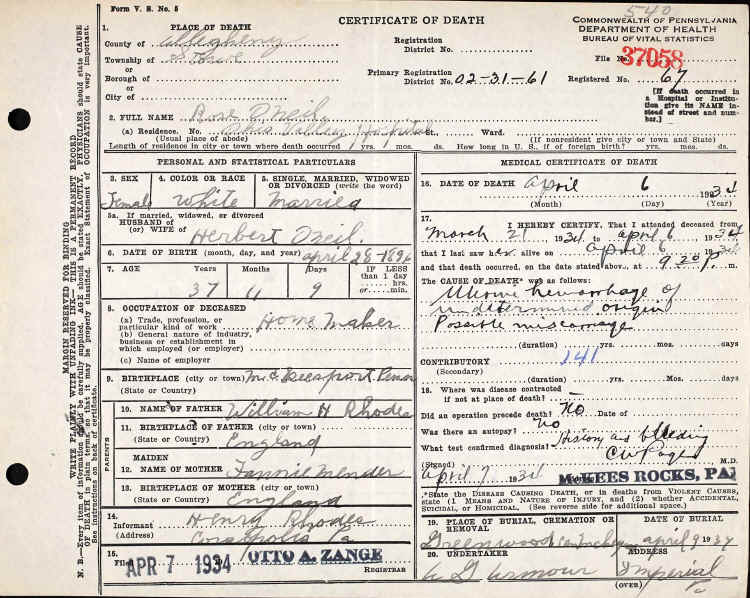 Form V. S. No. 5
540
CERTIFICATE OF DEATH
COMMONWEALTH OF PENNSYLVANIA
DEPARTMENT OF HEALTH
BUREAU OF VITAL STATISTICS
1. PLACE OF DEATH
County of Allegheny
Township of Stowe
or
Borough of
or
City of
Registration
District No.
Primary Registration
District No. 02-31-61
File No. 37058
Registered No. 67
[If death occurred in
a Hospital or Institu-
tion give its NAME in-
stead of street and num-
ber.]
2. FULL NAME Rose O'Neil
(a) Residence. No. Ohio Valley Hospital St., Ward.
(Usual place of abode) (If nonresident give city or town and State)
Length of residence in city or town where death occurred yrs. mos. ds. How long in U. S., if of foreign birth? yrs. mos. ds.
PERSONAL AND STATISTICAL PARTICULARS
3. SEX
Female
4. COLOR OR RACE
White
5. SINGLE, MARRIED, WIDOWED
OR DIVORCED (write the word)
Married
5a. If married, widowed, or divorced
HUSBAND of
(or) WIFE of Herbert Oneil
6. DATE OF BIRTH (month, day, and year) april 28-1896
7. AGE Years Months Days
37 11 9
If LESS than
1 day
hrs.
or min.
8. OCCUPATION OF DECEASED
(a) Trade, profession, or
particular kind of work Home Maker
(b) General nature of industry,
business or establishment in
which employed (or employer)
(c) Name of employer
9. BIRTHPLACE (city or town)
(State or Country)
PARENTS
10. NAME OF FATHER William H Rhodes
11. BIRTHPLACE OF FATHER (city or town)
(State or Country) England
12. MAIDEN
NAME OF MOTHER Fannie Mender
13. BIRTHPLACE OF MOTHER (city or town)
(State or Country) England
14.
Informant Henry Rhodes
Coraopolis Pa
15.
Filed APR 7 1934 OTTO A. ZANGE
REGISTRAR
MEDICAL CERTIFICATE OF DEATH
16. DATE OF DEATH april 6 1934
(Month) (Day) (Year)
17. I HEREBY CERTIFY, That I attended deceased from
March 21 1934 to april 6 1934
that I last saw her alive on april 6 1934
and that death occurred, on the date stated above, at 9 20 P. m.
The CAUSE OF DEATH* was as follows:
Uterine hemorrhage of
undetermined origin
Possible miscarriage
(duration) yrs. Mos. days
CONTRIBUTORY 141
(Secondary)
(duration) yrs. Mos. days
18. Where was disease contracted
if not at place of death?
Did an operation precede death? No Date of
Was there an autopsy? No
What test confirmed diagnosis? History and bleeding
(Signed) M.D.
April 7 1934 McKEES ROCKS, PA.
*State the DISEASE CAUSING DEATH, or in deaths from VIOLENT CAUSES,
state (1) MEANS AND NATURE OF INJURY, and (2) whether ACCIDENTAL,
SUICIDAL, or HOMICIDAL. (See reverse side for additional space.)
19. PLACE OF BURIAL, CREMATION OR
REMOVAL
Greenwood
DATE OF BURIAL
april 9 1934
20. UNDERTAKER
Armour
ADDRESS
Imperial
Pa
(OVER)
MARGIN RESERVED FOR BINDING
WRITE PLAINLY WITH UNFADING INK—THIS IS A PERMANENT RECORD
N. B.—Every item of information should be carefully supplied. AGE should be stated EXACTLY. PHYSICIANS should state CAUSE
OF DEATH in plain terms so that it may be properly classified. Exact Statement of OCCUPATION is very important.
See instructions on back of certificate.